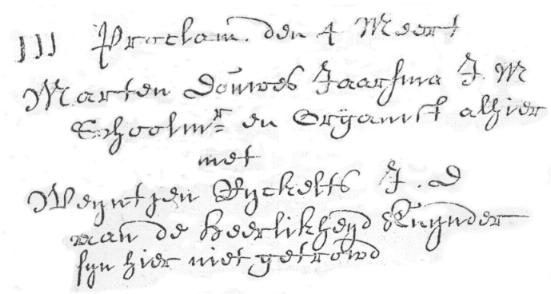 III Proclam. den 4 Meert
Marten Douwes Jaarsma J. M
Schoolmr en Organist alhier
met
Weyntjen Ryckelts J. D
van de Heerlikheyd Kuynder
syn hier niet getrowd